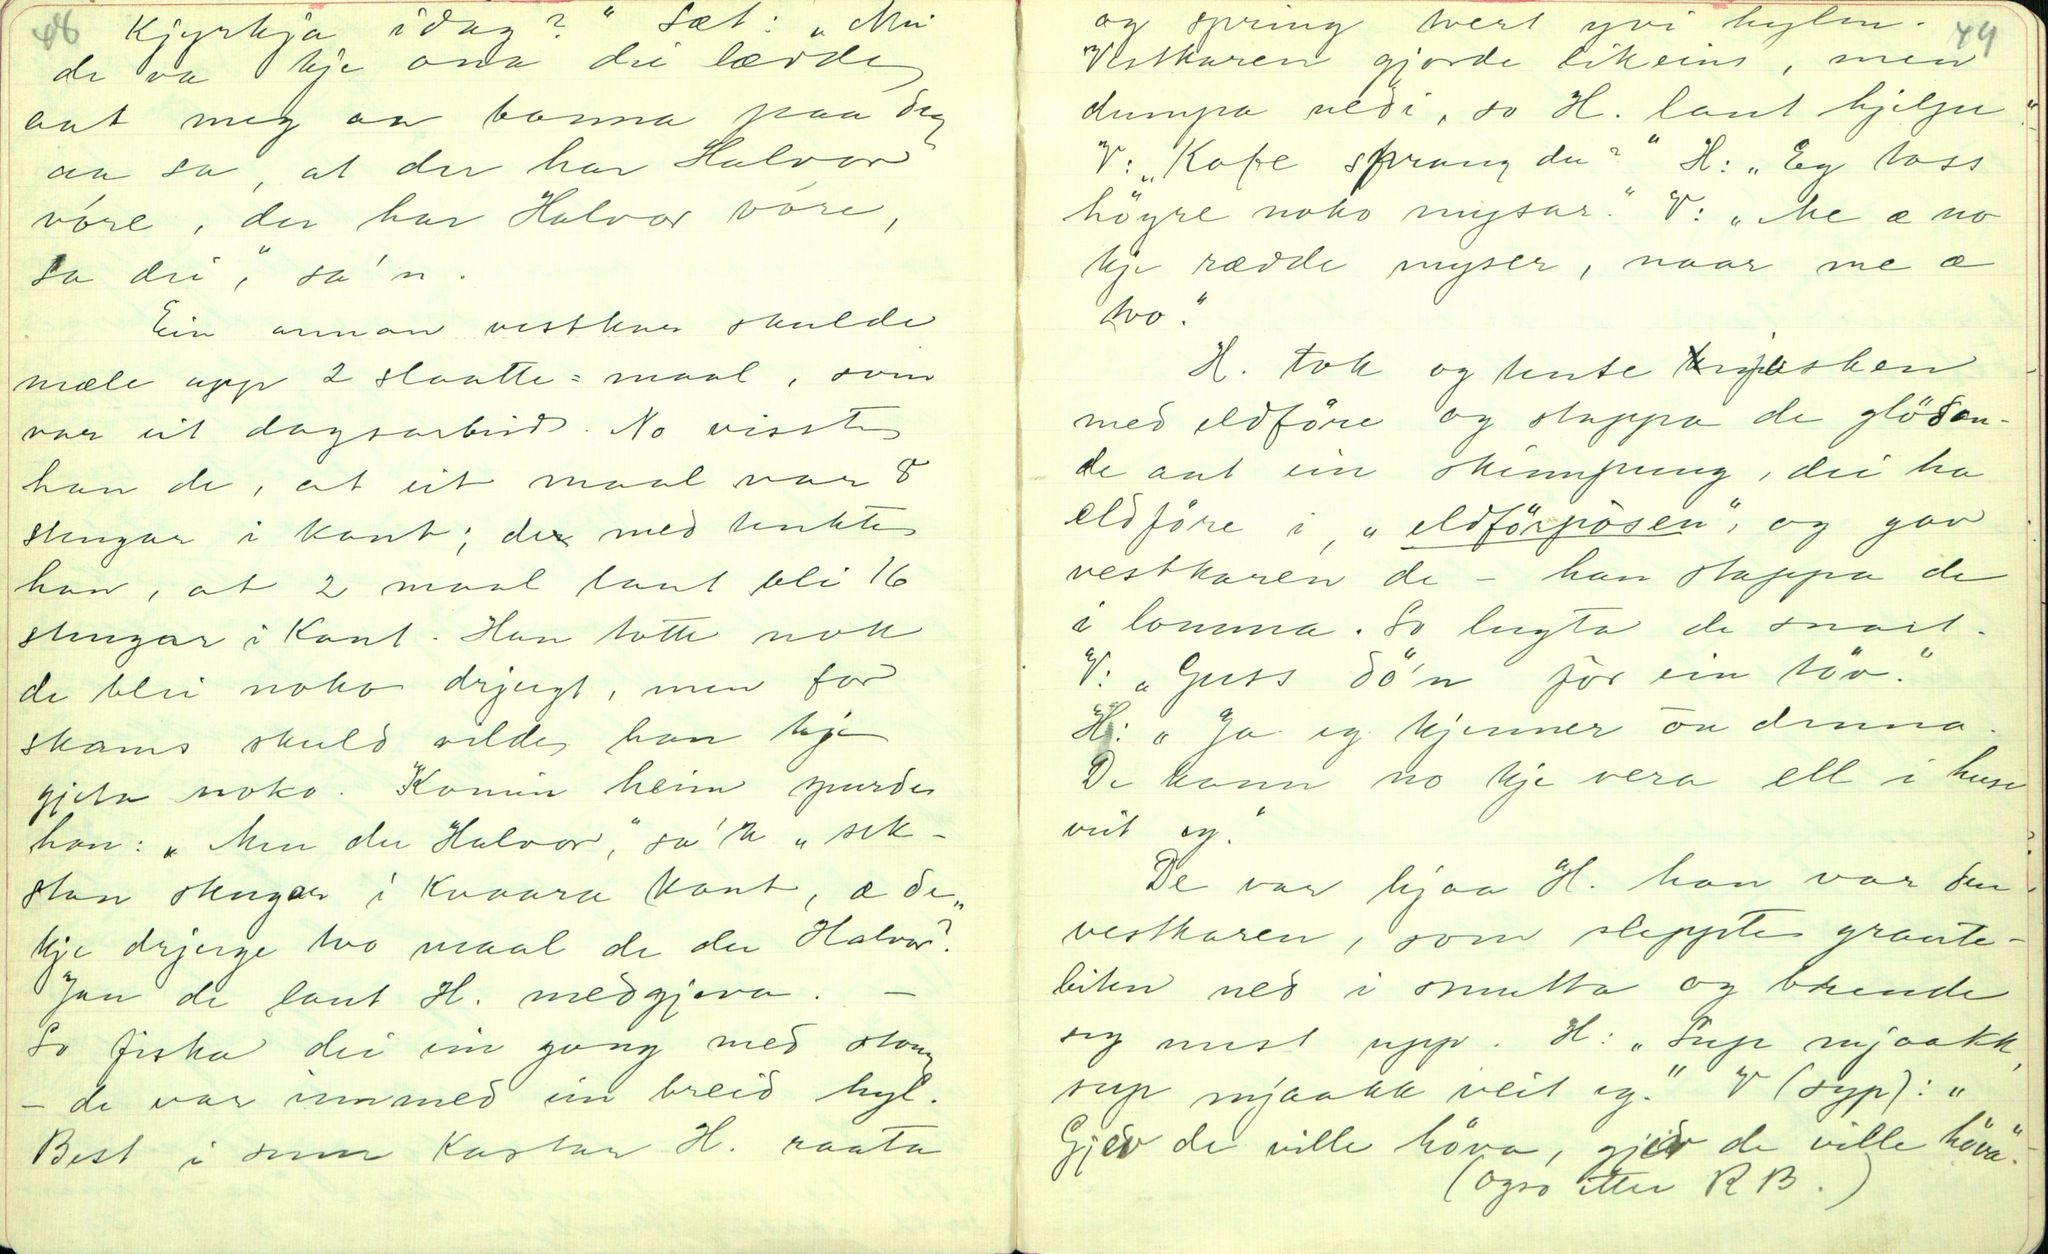 48
Kjyrkja idag?" Sæt: "Mei
de va kje ona dei lædde
aat meg aa banna paa deg
aa sa, at der har Halvor
vóre, der har Halvor vóre,
sa dei," sa'n.
Ein annan vestkar skulde
mæle upp 2 slaatte-maal, som
var eit dagsarbeid. No visste
han de, at eit maal var 8
stengar i kant; der med tenkte
han, at 2 maal laut bli 16
stengar i kant. Han totte nok
de blei noko drjugt, men for
skams skuld vilde han kje
gjeta noko. Komin heim spurde
han: "Men du Halvor," sa'n "sek-
stan stengar i kvaara kant, æ de
kje drjuge two maal de du Halvor?"
Jau de laut H. medgjeva. —
So fiska dei ein gong med stong
— de var innmed ein breid hyl.
Best i senn kastar H. raata
49
og spring tvert yvi hylen.
Vestkaren gjorde likeins, men
dumpa nedi, so H. laut hjelpe.
V: "Kofe sprang du?" H: "Eg toss
höyre noko mysar." V: "Me æ no
kje rædde myser, naar me æ
two."
H. tok og tente knjosken
med eldföre og stappa de glödan-
de aat ein skinnpung, dei ha
eldföre i, "eldförpósen", og gav
vestkaren de – han stappa de
i lomma. So lugta de snart.
V: "Guss dö'n för ein töv."
H: "Ja eg kjenner óu denna.
De kann no kje vera ell i huse
veit eg."
De var hjaa H. han var den
vestkaren, som sleppte graute-
biten ned i smutta og brende
seg mest upp. H: "Sup mjaakk,
sup mjaakk veit eg." V (syp): "
Gjev de ville höva, gjev de ville höva".
(Ogso etter R B.)